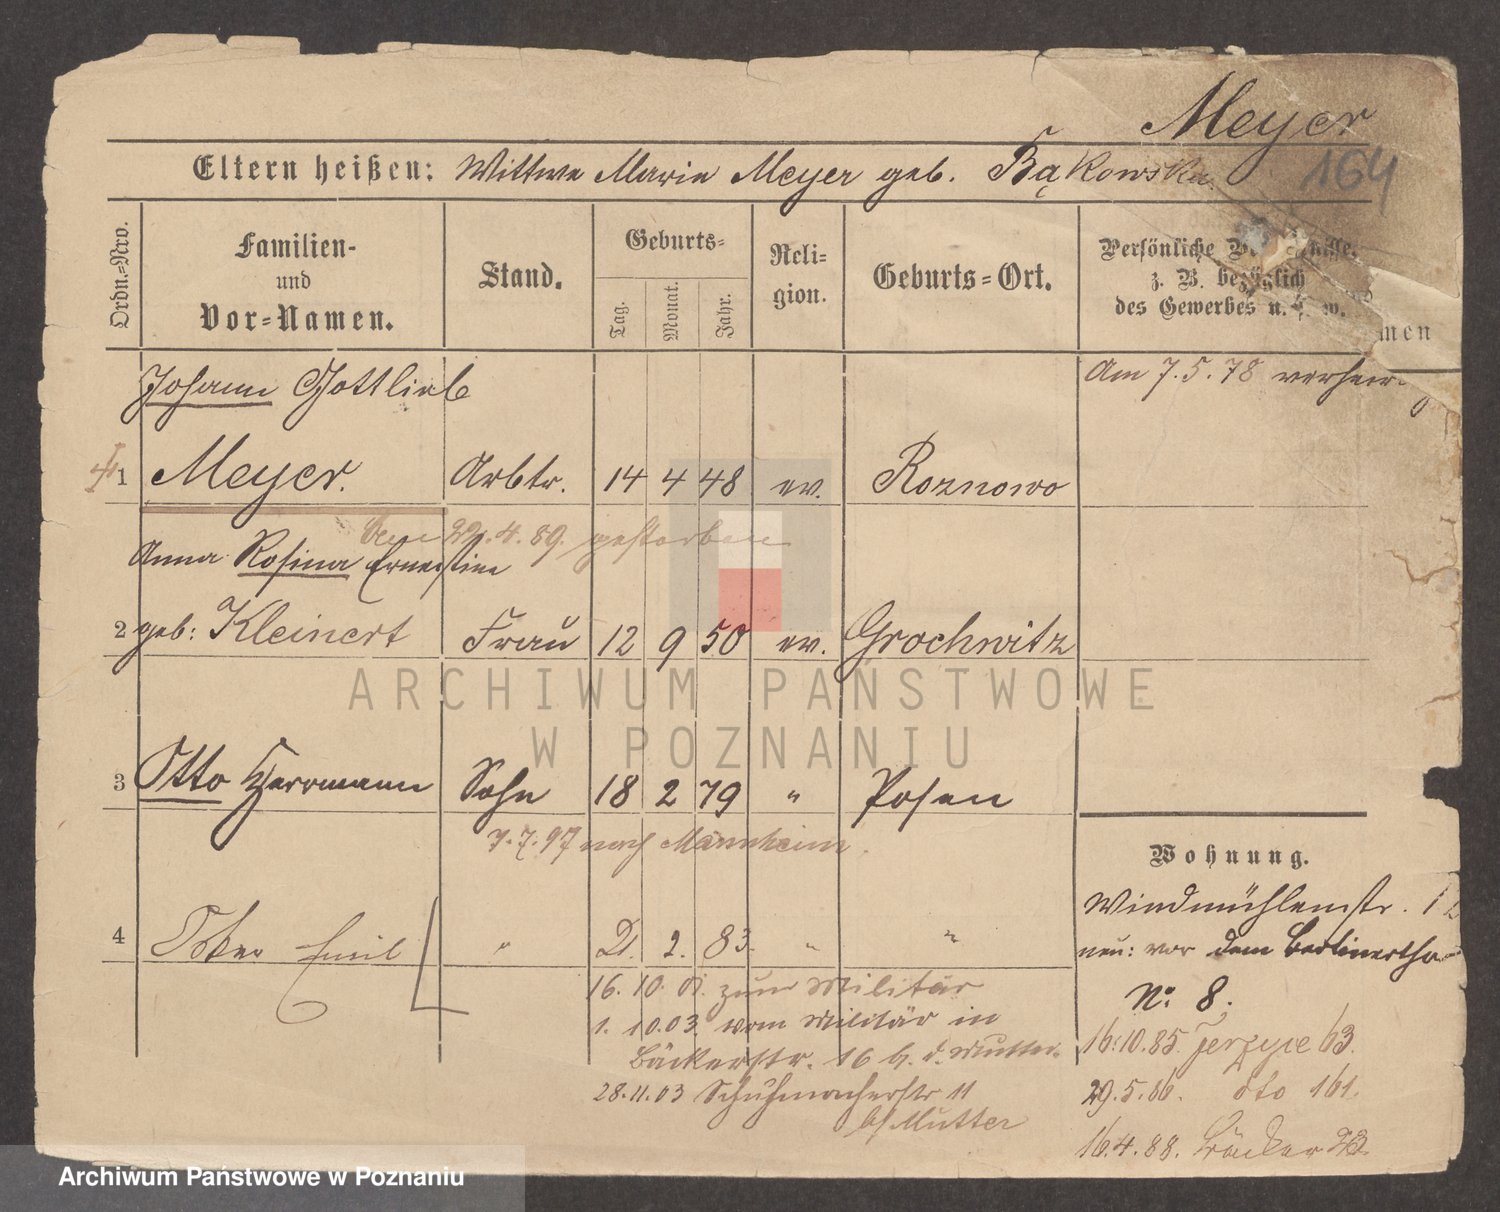 Meyer
164
Eltern heißen: Wittwe Marie Meyer geb. Bąkowska
Ordn.=Nro.
Familien-
und
Vor=Namen.
Stand.
Geburts=
Tag.
Monat.
Jahr.
Reli=
gion.
Geburts=Ort.
Persönliche
z. B. bezüglich
des Gewerbes u. s. w.
men
Johann Gottlieb
Am 7.5.78
1 Meyer. Arbtr. 14 4 48 ev. Roznowo
22.4.89. gestorben
Anna Rosina Ernestine
2 geb: Kleinert Frau 12 9 50 ev. Grochwitz
3 Otto Herrmann Sohn 18 2 79 " Posen
7.7.97 nach Mannheim.
Wohnung.
Windmühlenstr.
4 Oskar Emil " 21. 2. 83. " "
neu: vor dem Berlinerthor
No 8.
16. 10. 01. zum Militär
1. 10.03. vom Militär in
Bäckerstr. 16 b. d. Mutter.
28.11.03 Schuhmacherstr 11
bf Mutter
16.10.85. Jerzyce 63.
29.5.86. dto 161.
16.4.88. Bäcker 23
ARCHIWUM PAŃSTWOWE
W POZNANIU
Archiwum Państwowe w Poznaniu